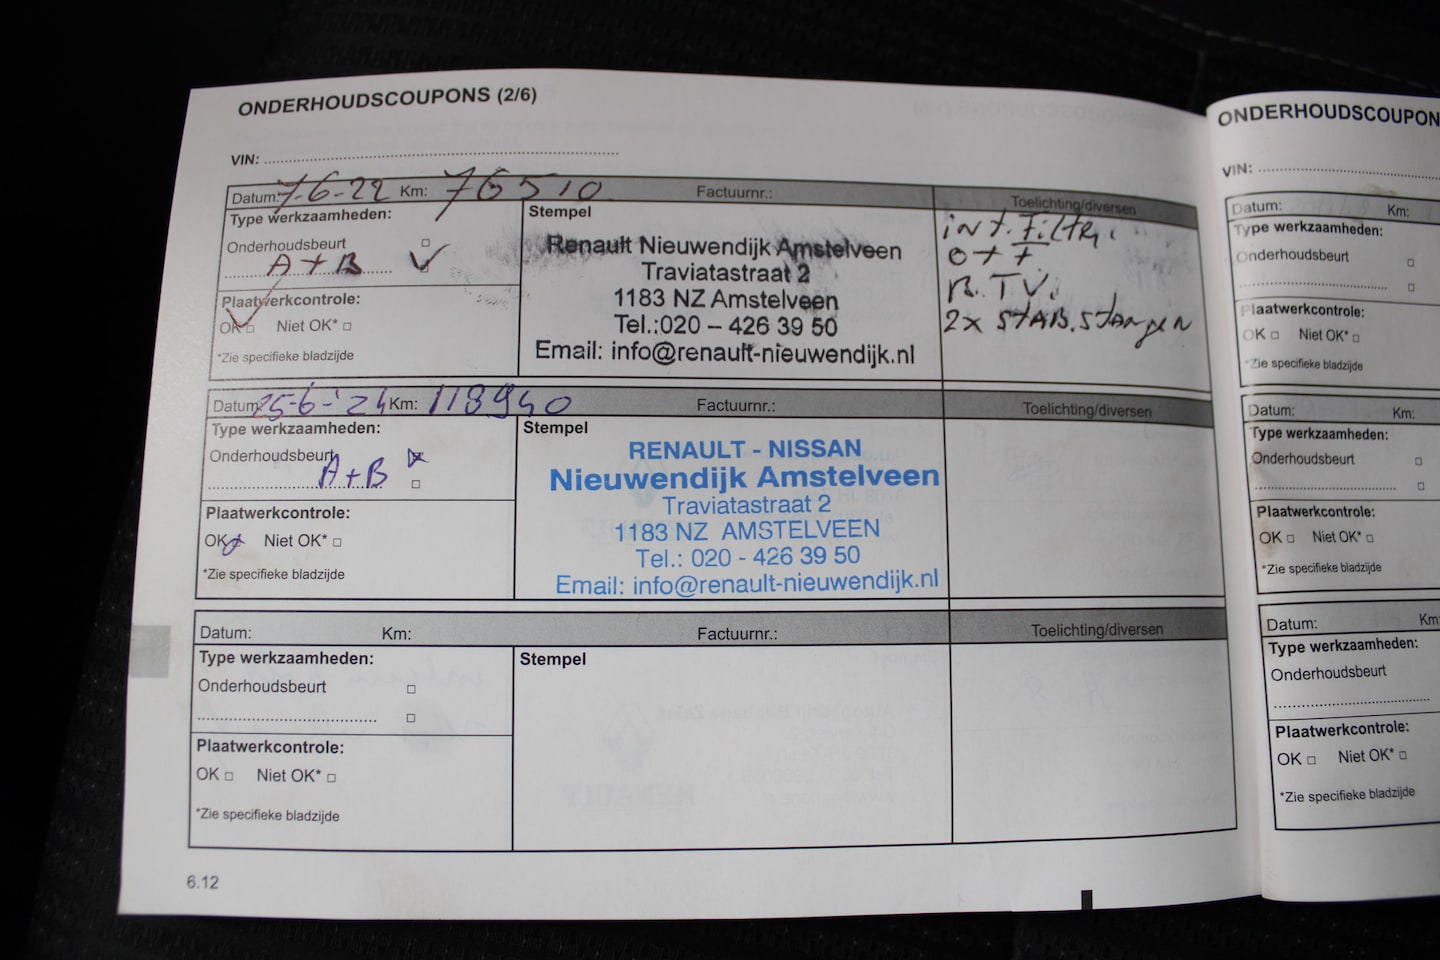 ONDERHOUDSCOUPONS (2/6)
VIN:
Datum: 7-6-22 Km: 76510 Factuurnr.: Toelichting/diversen
Type werkzaamheden:
Onderhoudsbeurt
A + B
Plaatwerkcontrole:
OK Niet OK*
*Zie specifieke bladzijde
Stempel
Renault Nieuwendijk Amstelveen
Traviatastraat 2
1183 NZ Amstelveen
Tel.:020 – 426 39 50
Email: info@renault-nieuwendijk.nl
int. Filtr.
R.T.V.
2x STAB.STangen
Datum: 25-6-'24 Km: 118940 Factuurnr.: Toelichting/diversen
Type werkzaamheden:
Onderhoudsbeurt
A+B
Plaatwerkcontrole:
OK Niet OK*
*Zie specifieke bladzijde
Stempel
RENAULT - NISSAN
Nieuwendijk Amstelveen
Traviatastraat 2
1183 NZ AMSTELVEEN
Tel.: 020 - 426 39 50
Email: info@renault-nieuwendijk.nl
Datum: Km: Factuurnr.: Toelichting/diversen
Type werkzaamheden:
Onderhoudsbeurt
Plaatwerkcontrole:
OK Niet OK*
*Zie specifieke bladzijde
Stempel
6.12
ONDERHOUDSCOUPON
VIN:
Datum: Km:
Type werkzaamheden:
Onderhoudsbeurt
Plaatwerkcontrole:
OK Niet OK*
*Zie specifieke bladzijde
Datum: Km:
Type werkzaamheden:
Onderhoudsbeurt
Plaatwerkcontrole:
OK Niet OK*
*Zie specifieke bladzijde
Datum: Km
Type werkzaamheden:
Onderhoudsbeurt
Plaatwerkcontrole:
OK Niet OK*
*Zie specifieke bladzijde